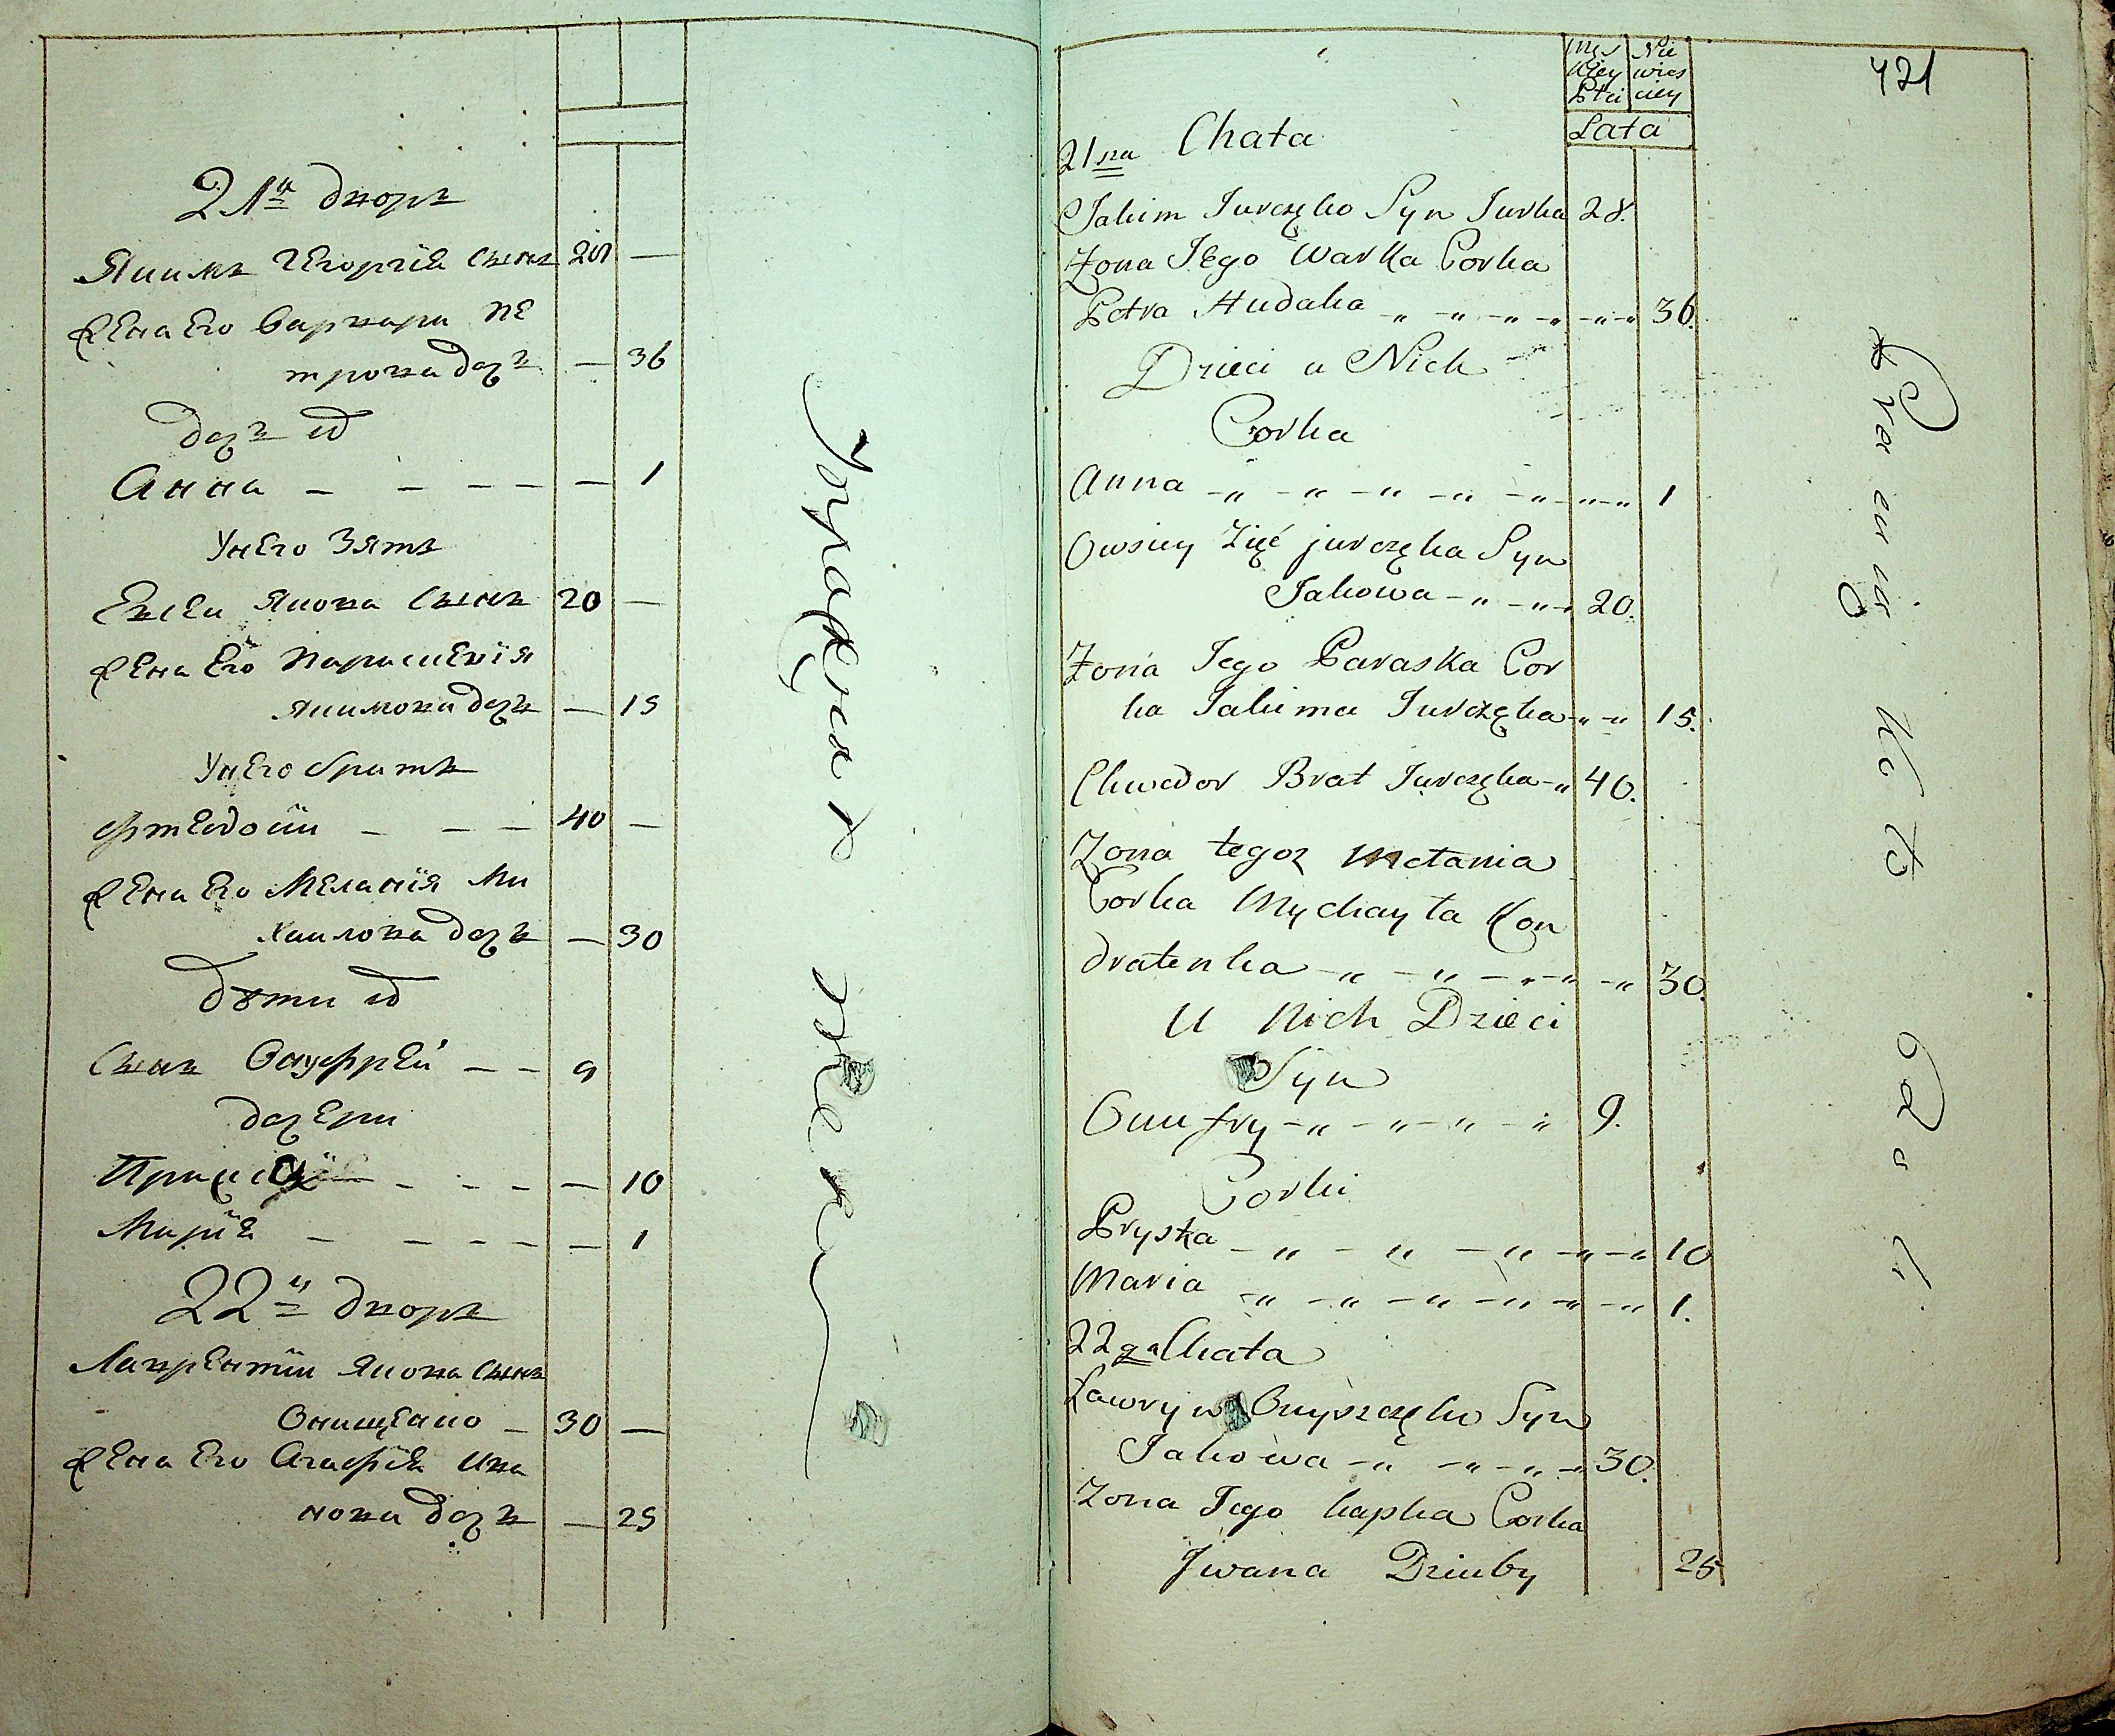 21й дворъ
Якимъ Георгіевъ сынъ 28 —
жена Его варвара пе
трова дочъ — 36
дочъ их
Анна — — — — — — 1
У него Зять
Евсеи Якова сынъ 20 —
жена Его Параскевія
якимова дочъ — 15
У него братъ
Фтеодоій — — — 40 —
жена Его Меланія Ми
хаилова дочъ — 30
дѣти их
сынъ Онуфрей — — 9
дочери
— — — — 10
Марія — — — — — 1
22й дворъ
Лаврентій Якова сынъ
Онищенко — 30 —
жена Его Агафія Ива
нова дочъ — 25
421
Męs Nie
kiey wies
Płci ciey
Lata
21na Chata
Jakim Jurczęko Syn Jurka 28.
Zona Jego Warka Corka
Petra Hudaka 36.
Dzieci u Nich
Corka
Anna 1
Owsiey Zięć jurczęka Syn
Jakowa 20.
Zona Jego Paraska Cor
ka Jakima Jurczęka 15.
Chwedor Brat Jurczęka 40.
Zona tegoz Mełania
Corka Mychayła Kon
dratenka 30.
U Nich Dzieci
Syn
Onufry 9.
Corki
Pryska 10
Maria 1.
22ga Chata
Ławryn Onyszczęko Syn
Jakowa 30.
Zona Jego hapka Corka
Jwana Dziuby 25